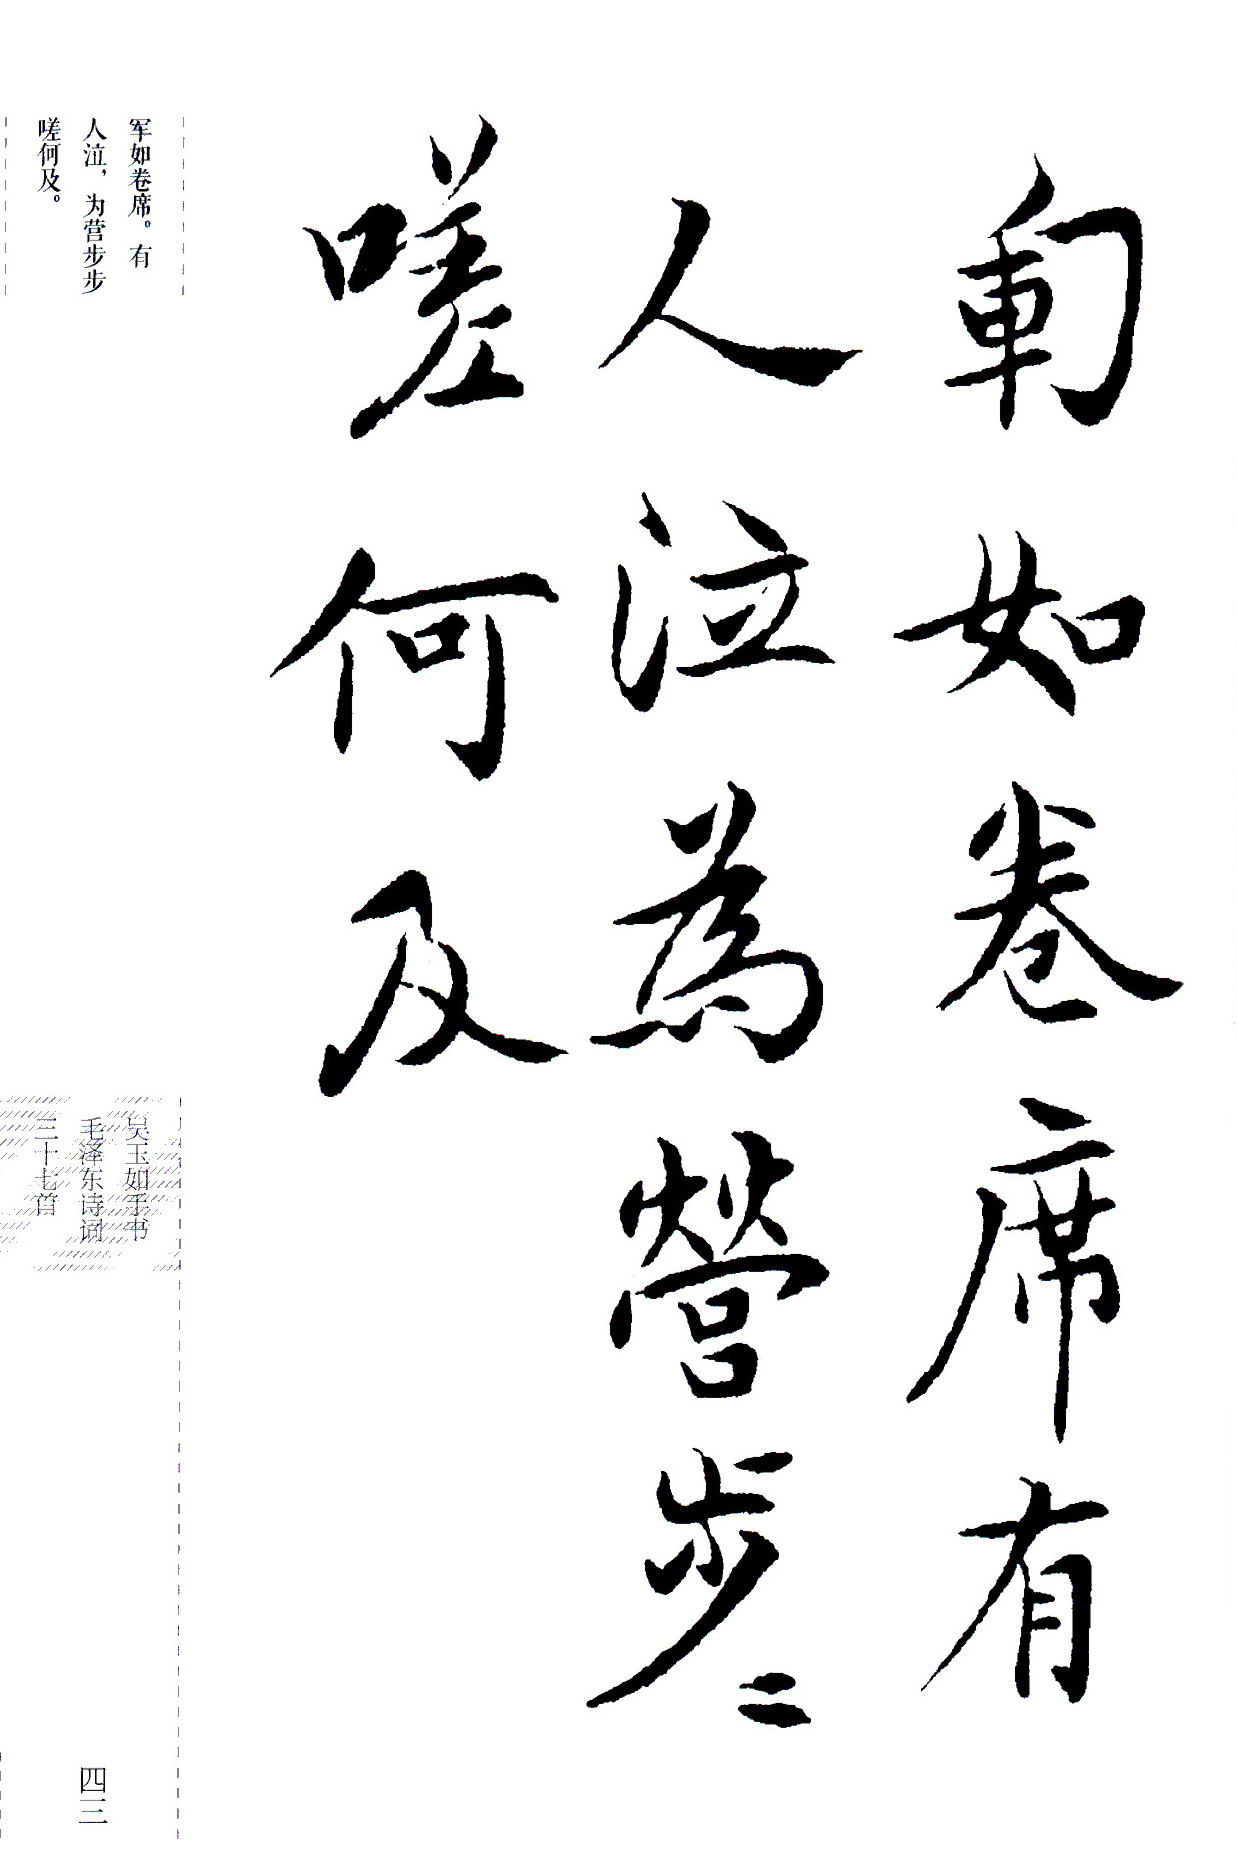 軍如卷席有
人泣為營步〻
嗟何及
军如卷席。有
人泣，为营步步
嗟何及。
吴玉如手书
毛泽东诗词
三十七首
四三